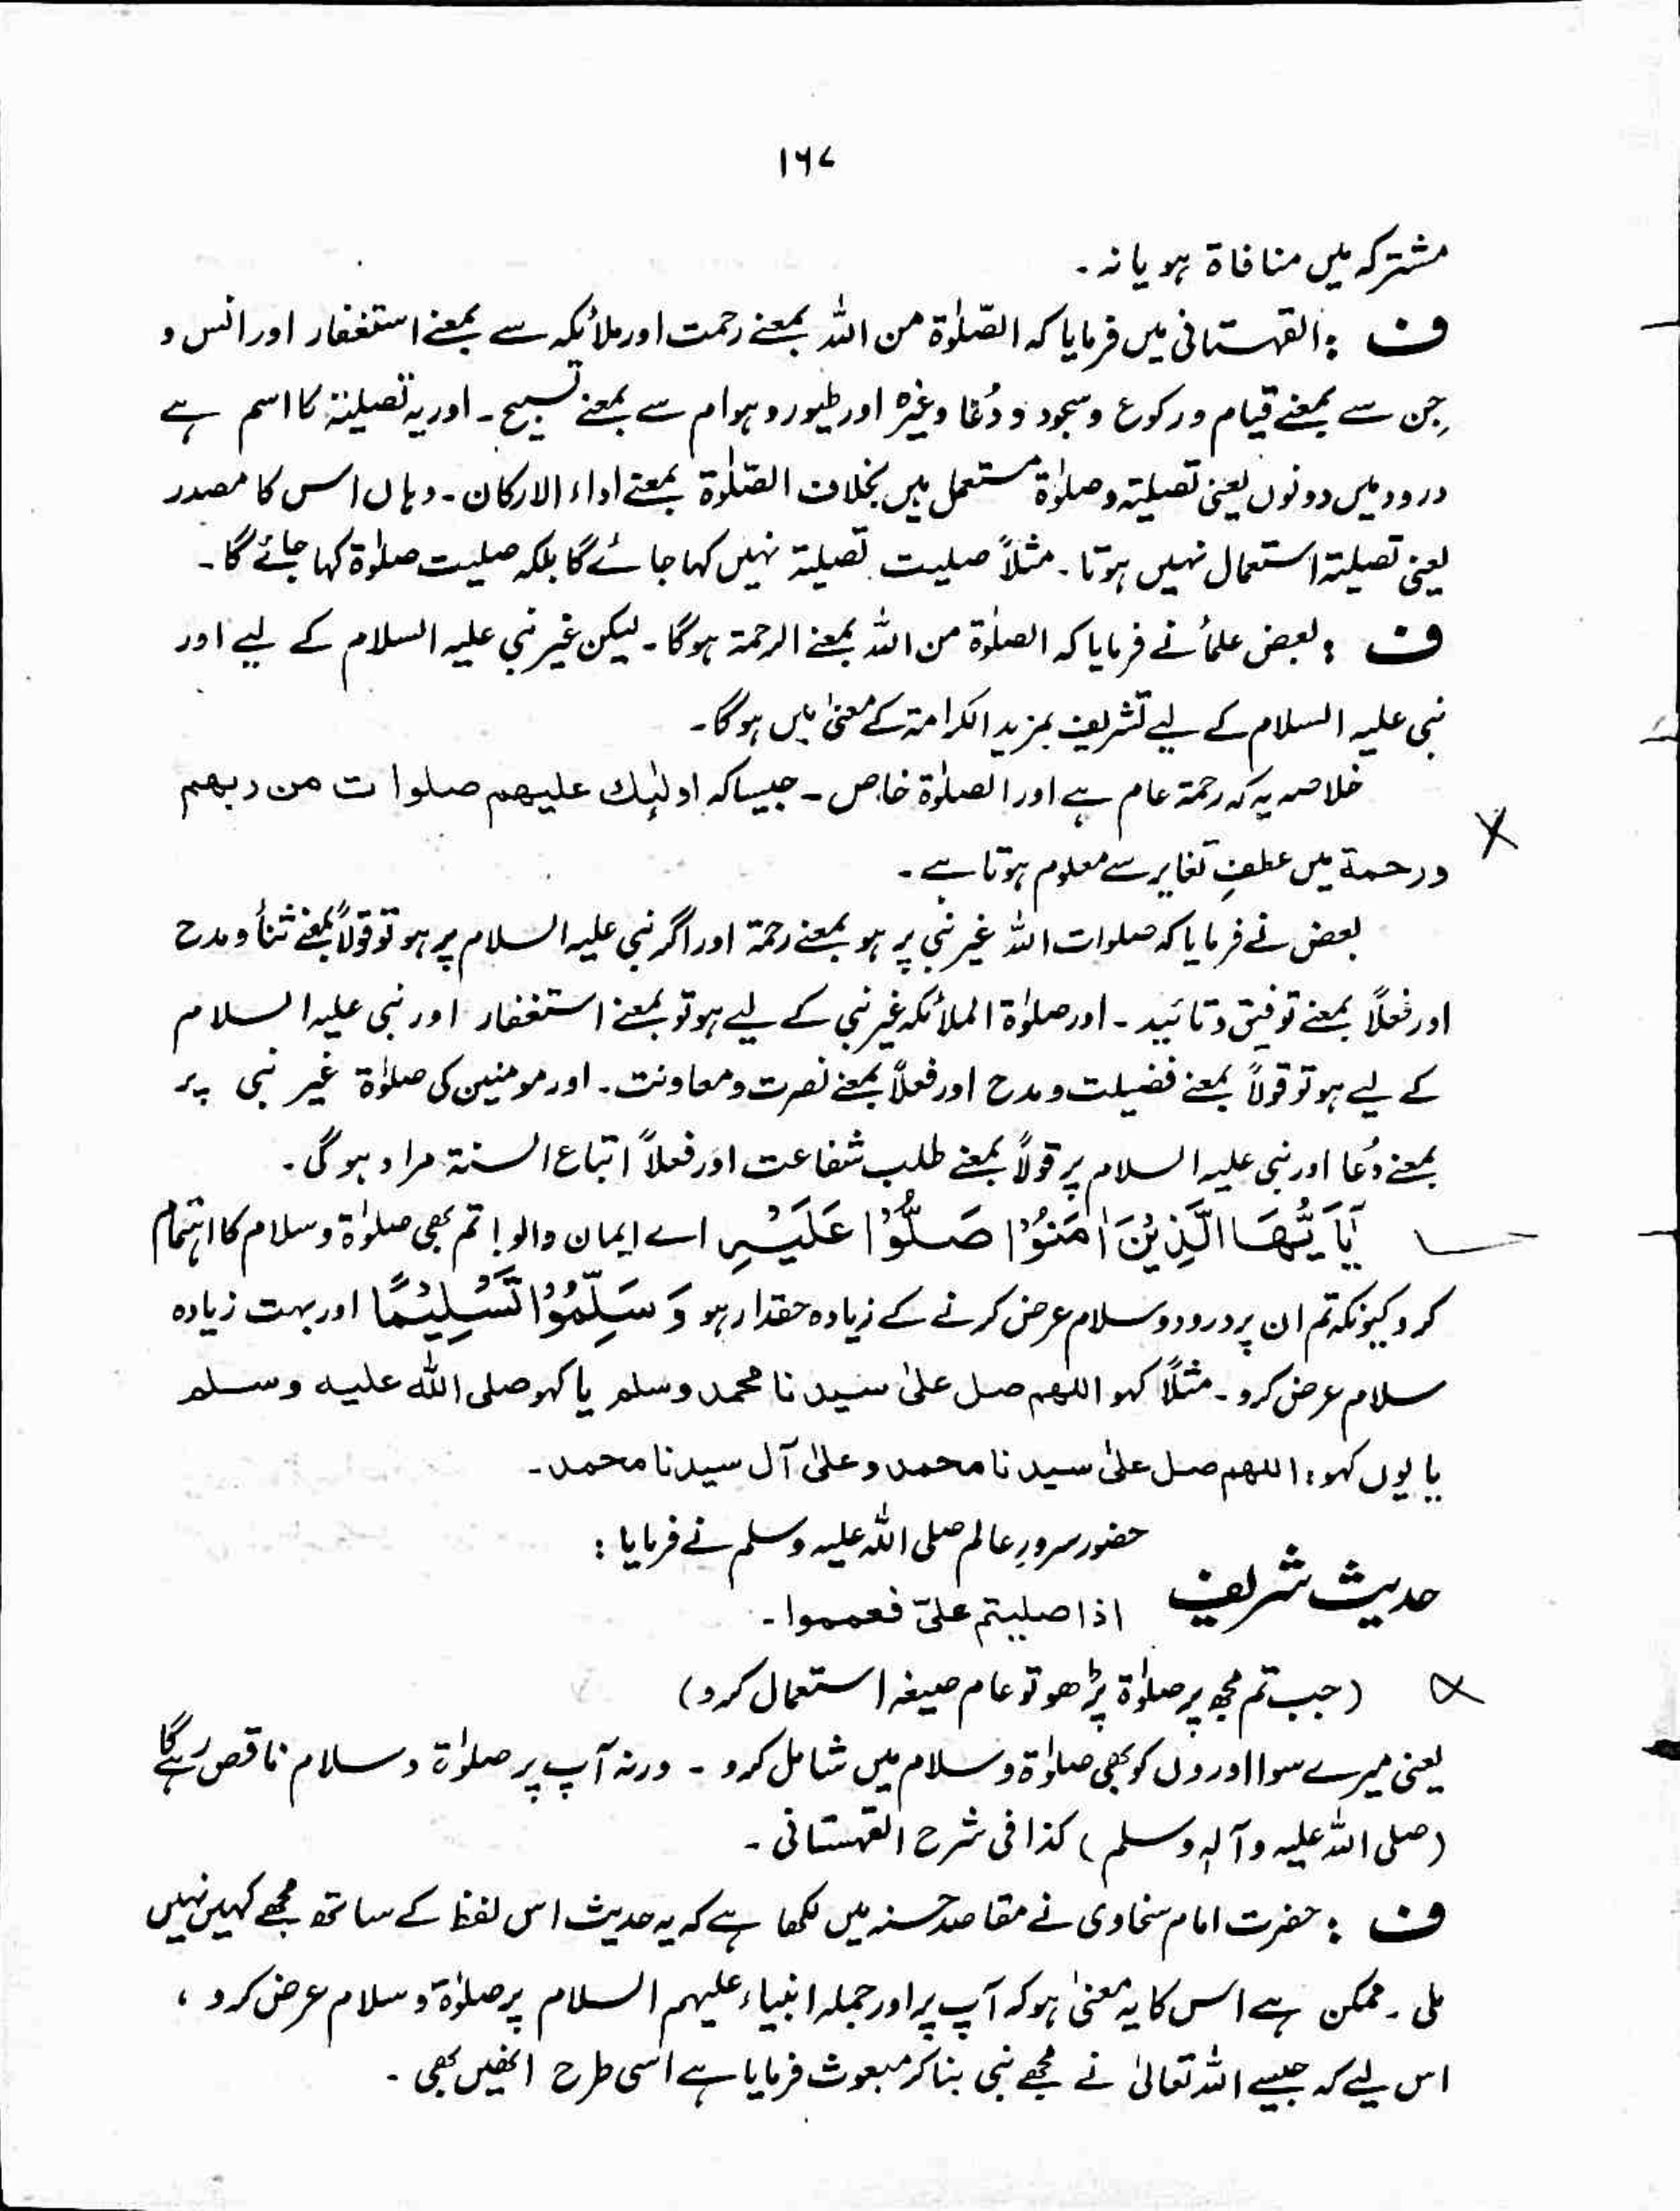 ۱۶۷
مشترکہ میں منافاۃ ہو یا نہ۔
ف : القہستانی میں فرمایا کہ الصّلوٰۃ من اللہ بمعنے رحمت اور ملائکہ سے بمعنے استغفار اور انس و
جِن سے بمعنے قیام و رکوع و سجود و دُعا وغیرہ اور طیور و ہوام سے بمعنے تسبیح۔ اور یہ تصلیۃ کا اسم ہے
درود میں دونوں یعنی تصلیۃ و صلوٰۃ مستعمل ہیں بخلاف الصّلوٰۃ بمعنے اداء الارکان۔ وہاں اس کا مصدر
یعنی تصلیۃ استعمال نہیں ہوتا۔ مثلاً صلیت تصلیۃ نہیں کہا جائے گا بلکہ صلیت صلوٰۃ کہا جائے گا۔
ف : بعض علمأ نے فرمایا کہ الصلوٰۃ من اللہ بمعنے الرحمۃ ہوگا۔ لیکن غیر نبی علیہ السلام کے لیے اور
نبی علیہ السلام کے لیے تشریف بمزید الکرامۃ کے معنیٰ میں ہوگا۔
خلاصہ یہ کہ رحمۃ عام ہے اور الصلوٰۃ خاص۔ جیسا کہ اولٰئِك علیهم صلوات من ربهم
ورحمة میں عطفِ تغایر سے معلوم ہوتا ہے۔
بعض نے فرمایا کہ صلوات اللہ غیر نبی پر ہو بمعنے رحمۃ اور اگر نبی علیہ السلام پر ہو تو قولاً بمعنے ثنأ و مدح
اور فعلاً بمعنے توفیق و تائید۔ اور صلوٰۃ الملائکہ غیر نبی کے لیے ہو تو بمعنے استغفار اور نبی علیہ السلام
کے لیے ہو تو قولاً بمعنے فضیلت و مدح اور فعلاً بمعنے نصرت و معاونت۔ اور مومنین کی صلوٰۃ غیر نبی پر
بمعنے دُعا اور نبی علیہ السلام پر قولاً بمعنے طلب شفاعت اور فعلاً اتباع السنۃ مراد ہوگی۔
یٰۤاَیُّھَا الَّذِیْنَ اٰمَنُوْا صَلُّوْا عَلَیْہِ اے ایمان والو! تم بھی صلوٰۃ و سلام کا اہتمام
کرو کیونکہ تم ان پر درود و سلام عرض کرنے کے زیادہ حقدار ہو وَ سَلِّمُوْا تَسْلِیْمًا اور بہت زیادہ
سلام عرض کرو۔ مثلاً کہو اللهم صل علیٰ سیدنا محمد وسلم یا کہو صلی اللہ علیه وسلم
یا یوں کہو : اللهم صل علیٰ سیدنا محمد وعلیٰ آل سیدنا محمد۔
حضور سرورِ عالم صلی اللہ علیہ وسلم نے فرمایا :
حدیث شریف اذا صلیتم علیّ فعمموا۔
(جب تم مجھ پر صلوٰۃ پڑھو تو عام صیغہ استعمال کرو)
یعنی میرے سوا اوروں کو بھی صلوٰۃ و سلام میں شامل کرو۔ ورنہ آپ پر صلوٰۃ و سلام ناقص رہے گا
(صلی اللہ علیہ وآلہٖ وسلم) کذا فی شرح القہستانی۔
ف : حضرت امام سخاوی نے مقاصد حسنہ میں لکھا ہے کہ یہ حدیث اس لفظ کے ساتھ مجھے کہیں نہیں
ملی۔ ممکن ہے اس کا یہ معنیٰ ہو کہ آپ پر اور جملہ انبیاء علیہم السلام پر صلوٰۃ و سلام عرض کرو ،
اس لیے کہ جیسے اللہ تعالیٰ نے مجھے نبی بنا کر مبعوث فرمایا ہے اسی طرح انھیں بھی۔